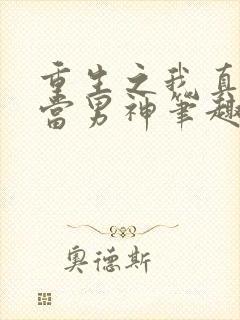 重生之我真
当男神笔趣
奥德斯